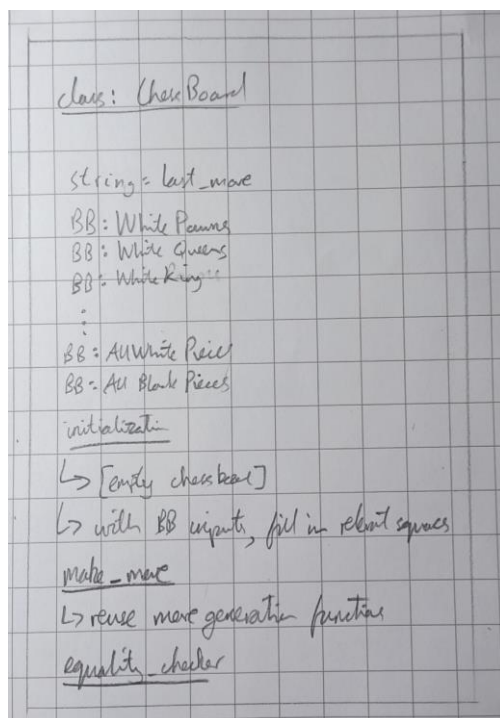 class: ChessBoard
string: last_move
BB: White Pawns
BB: White Queens
BB: White King
:
BB: All White Pieces
BB: All Black Pieces
initialization
↳ [empty chessboard]
↳ with BB inputs, fill in relevant squares
make_move
↳ reuse move generation functions
equality_checker